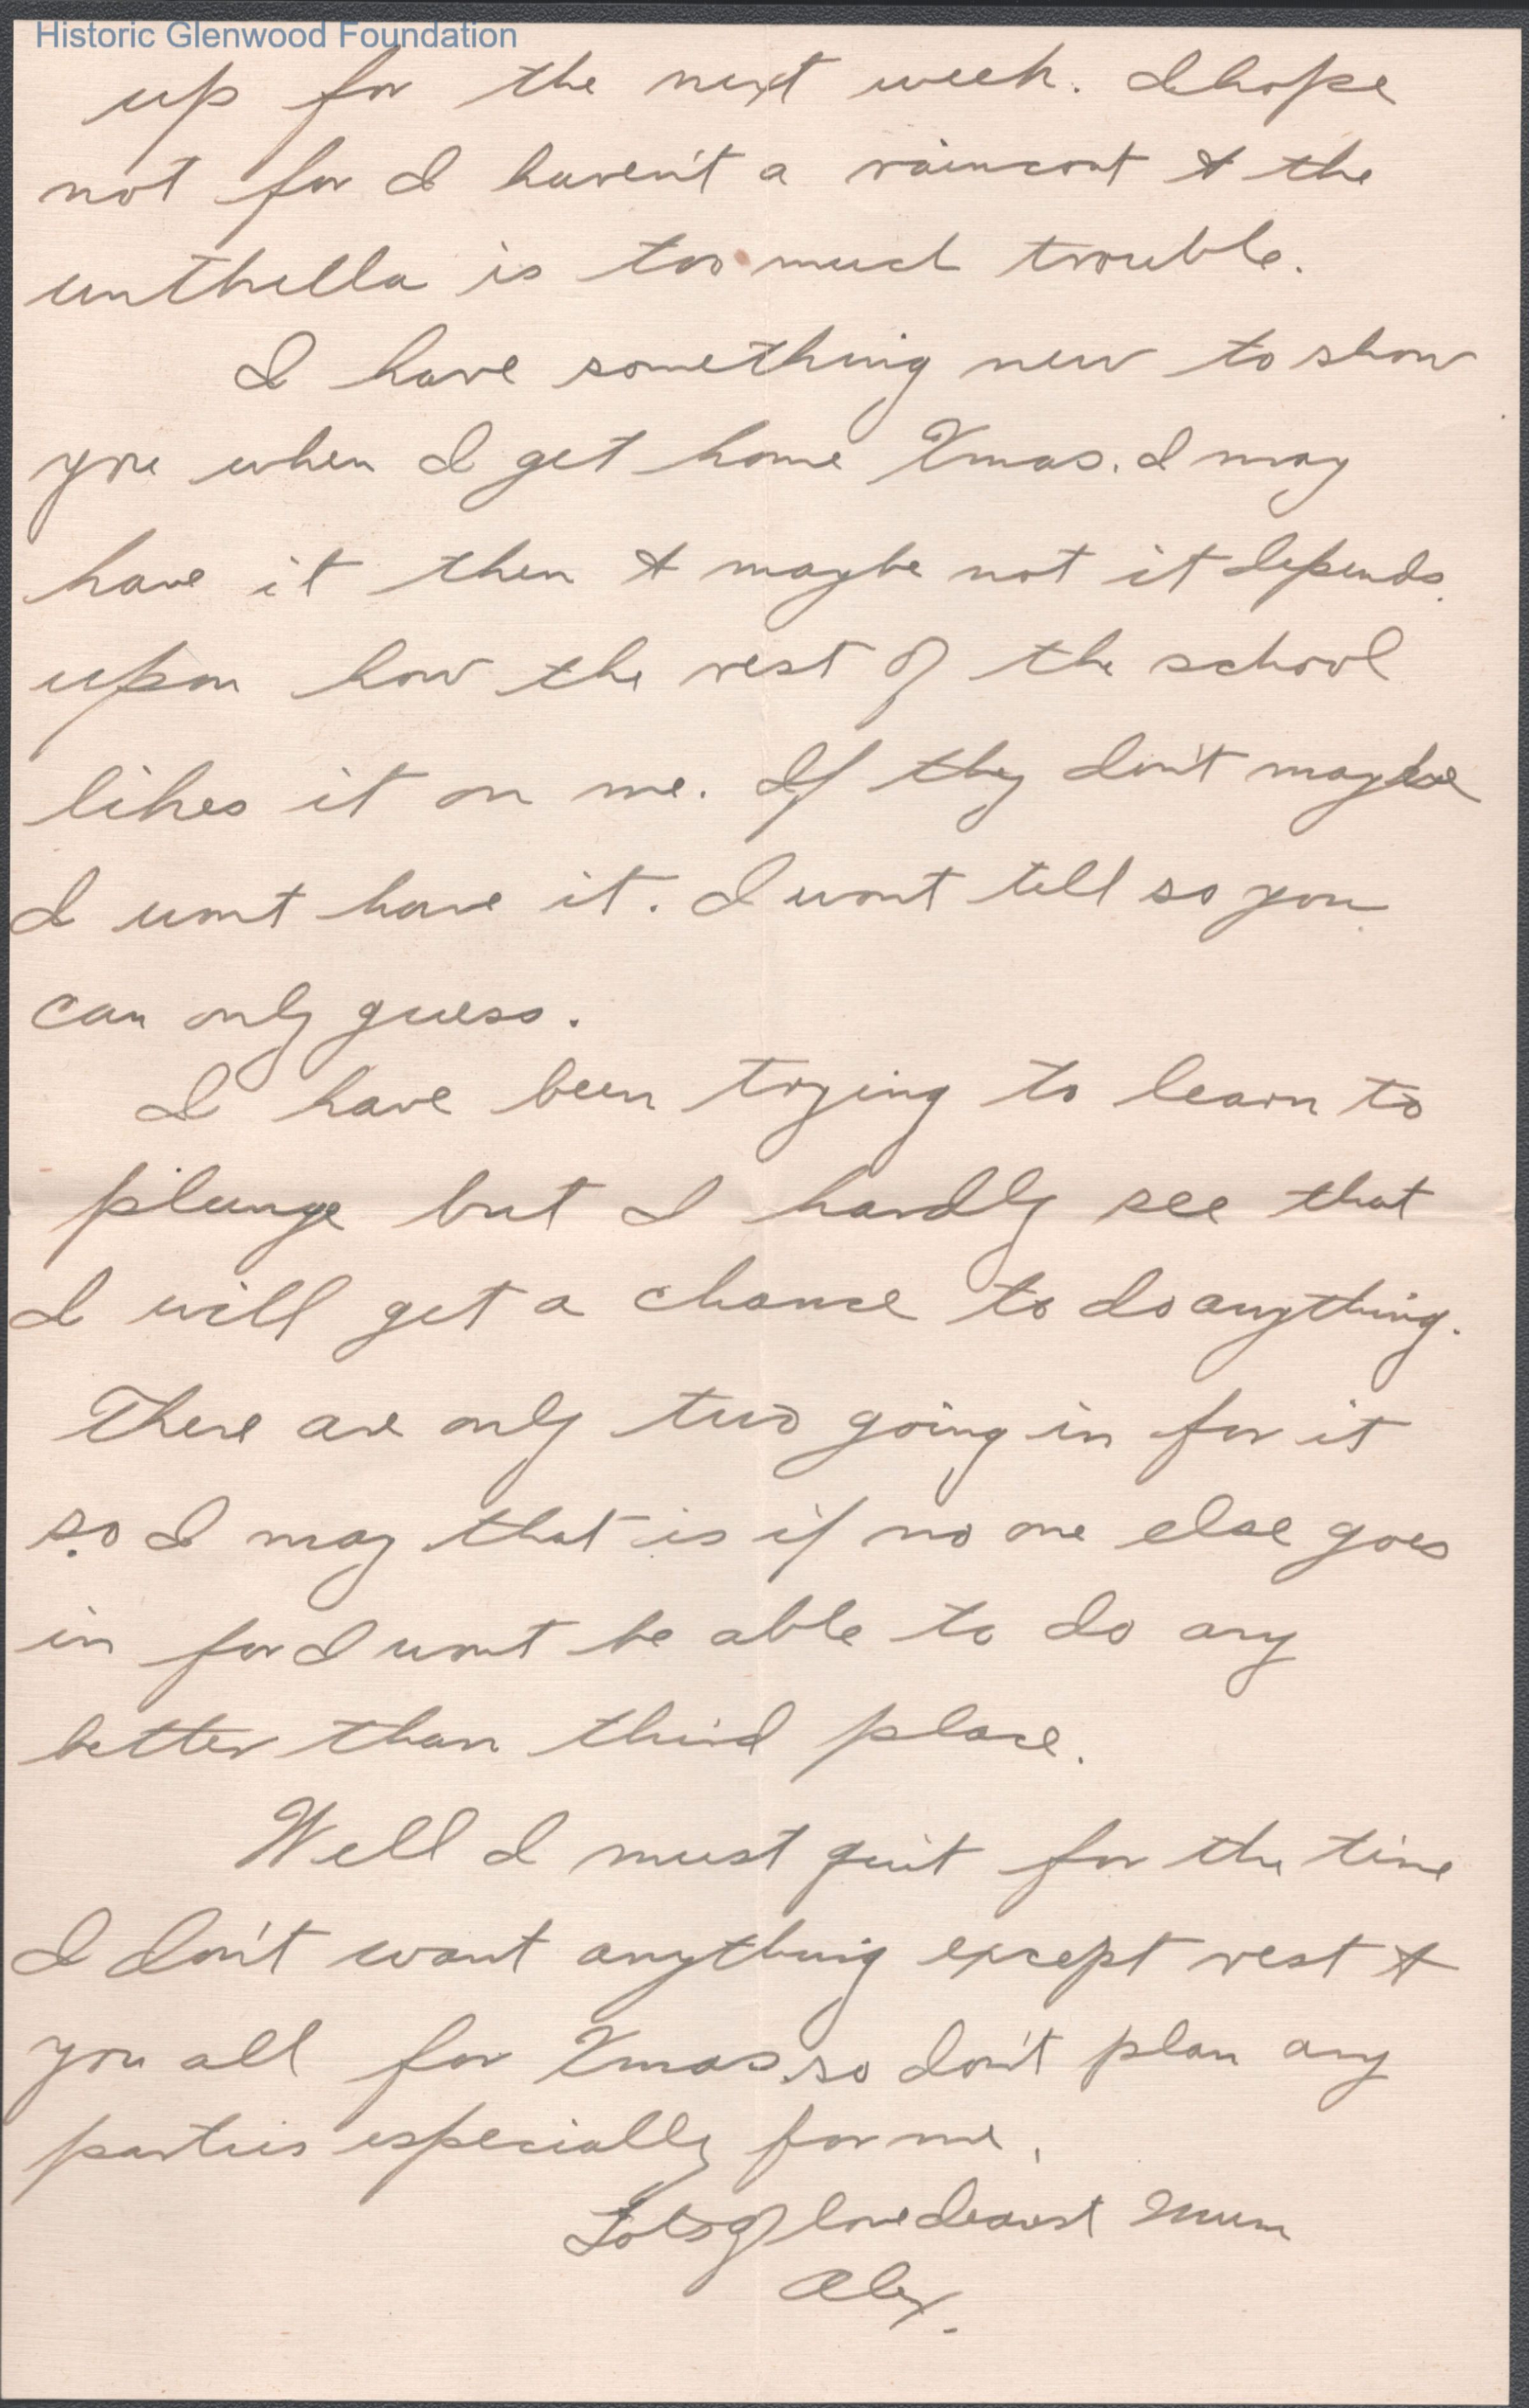 Historic Glenwood Foundation
up for the next week. I hope
not for I haven't a raincoat & the
unthrella is too much trouble.
I have something new to show
you when I get home Xmas. I may
have it then & maybe not it depends
upon how the rest of the school
likes it on me. If they don't maybe
I wont have it. I wont tell so you
can only guess.
I have been trying to learn to
plunge but I hardly see that
I will get a chance to do anything.
There are only two going in for it
so I may that is if no one else goes
in for I wont be able to do any
better than third place.
Well I must quit for the time
I don't want anything except rest &
you all for Xmas so don't plan any
parties especially for me.
Lots of love dearest Mum
Alex.